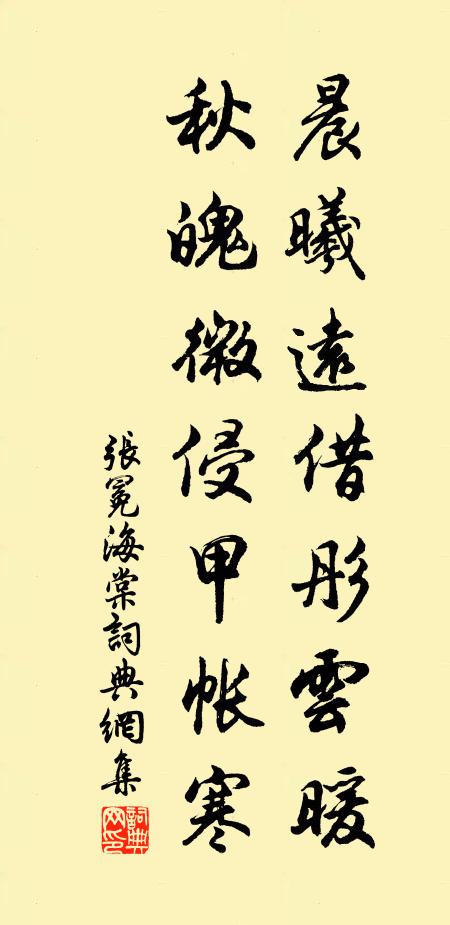 晨曦遠借彤雲暖
秋魄微侵甲帳寒
張冕海棠詞典網集
詞典網印